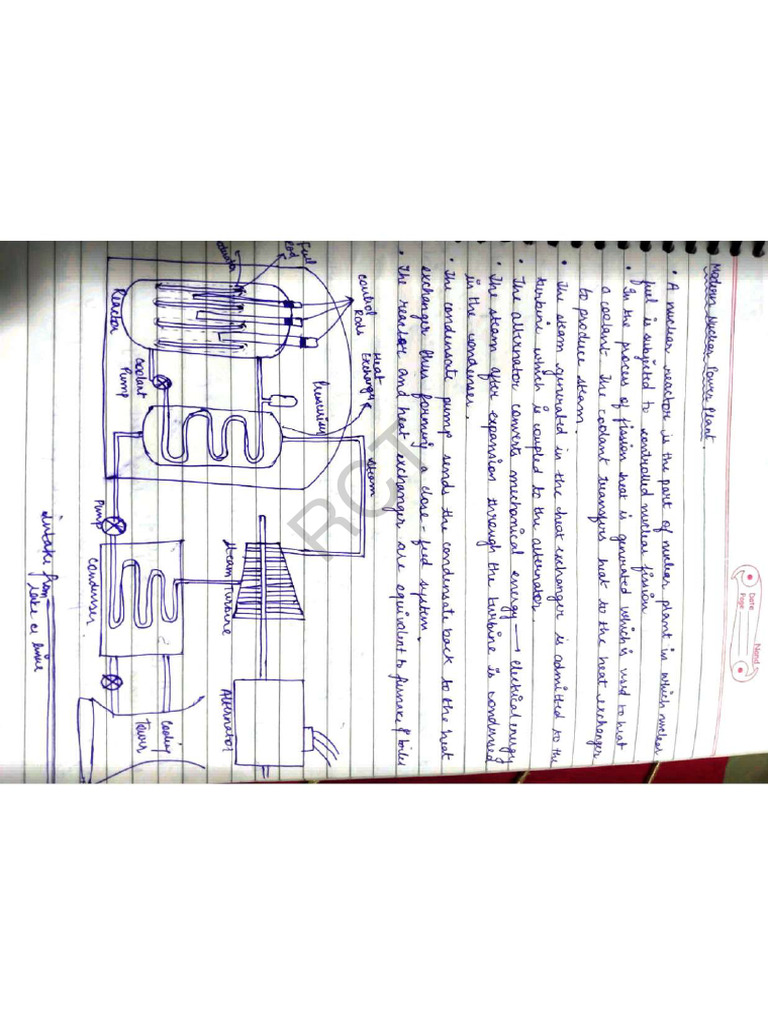 Nand
Date
Page
Modern Nuclear Power Plant.
• A nuclear reactor is the part of nuclear plant in which nuclear
fuel is subjected to controlled nuclear fission
• In the process of fission heat is generated which is used to heat
a coolant. The coolant transfers heat to the heat exchanger
to produce steam.
• The steam generated in the heat exchanger is admitted to the
turbine which is coupled to the alternator.
• The alternator converts mechanical energy → electrical energy
• The steam after expansion through the turbine is condensed
in the condenser.
• The condensate pump sends the condensate back to the heat
exchanger thus forming a close-fed system.
• The reactor and heat exchanger are equivalent to furnace & boiler
Heat
Exchanger
Steam
Control
Rods
Fuel
Rod
Reactor
Coolant
Pump
Pump
Steam Turbine
Alternator
Condenser
Cooling
Tower
Intake from
lake or river
RCT